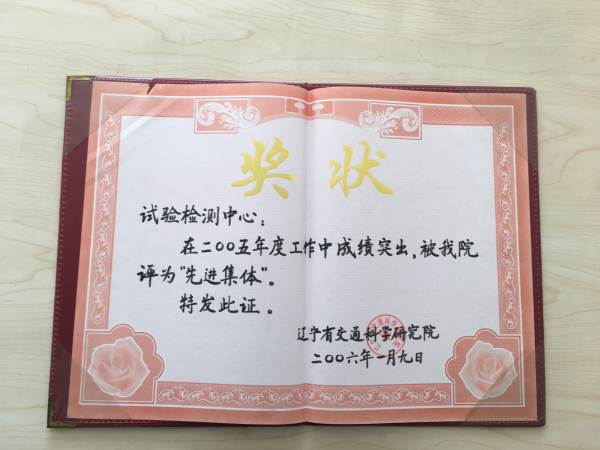 奖状
试验检测中心:
在二〇〇五年度工作中成绩突出,被我院
评为"先进集体"。
特发此证。
辽宁省交通科学研究院
二〇〇六年一月九日